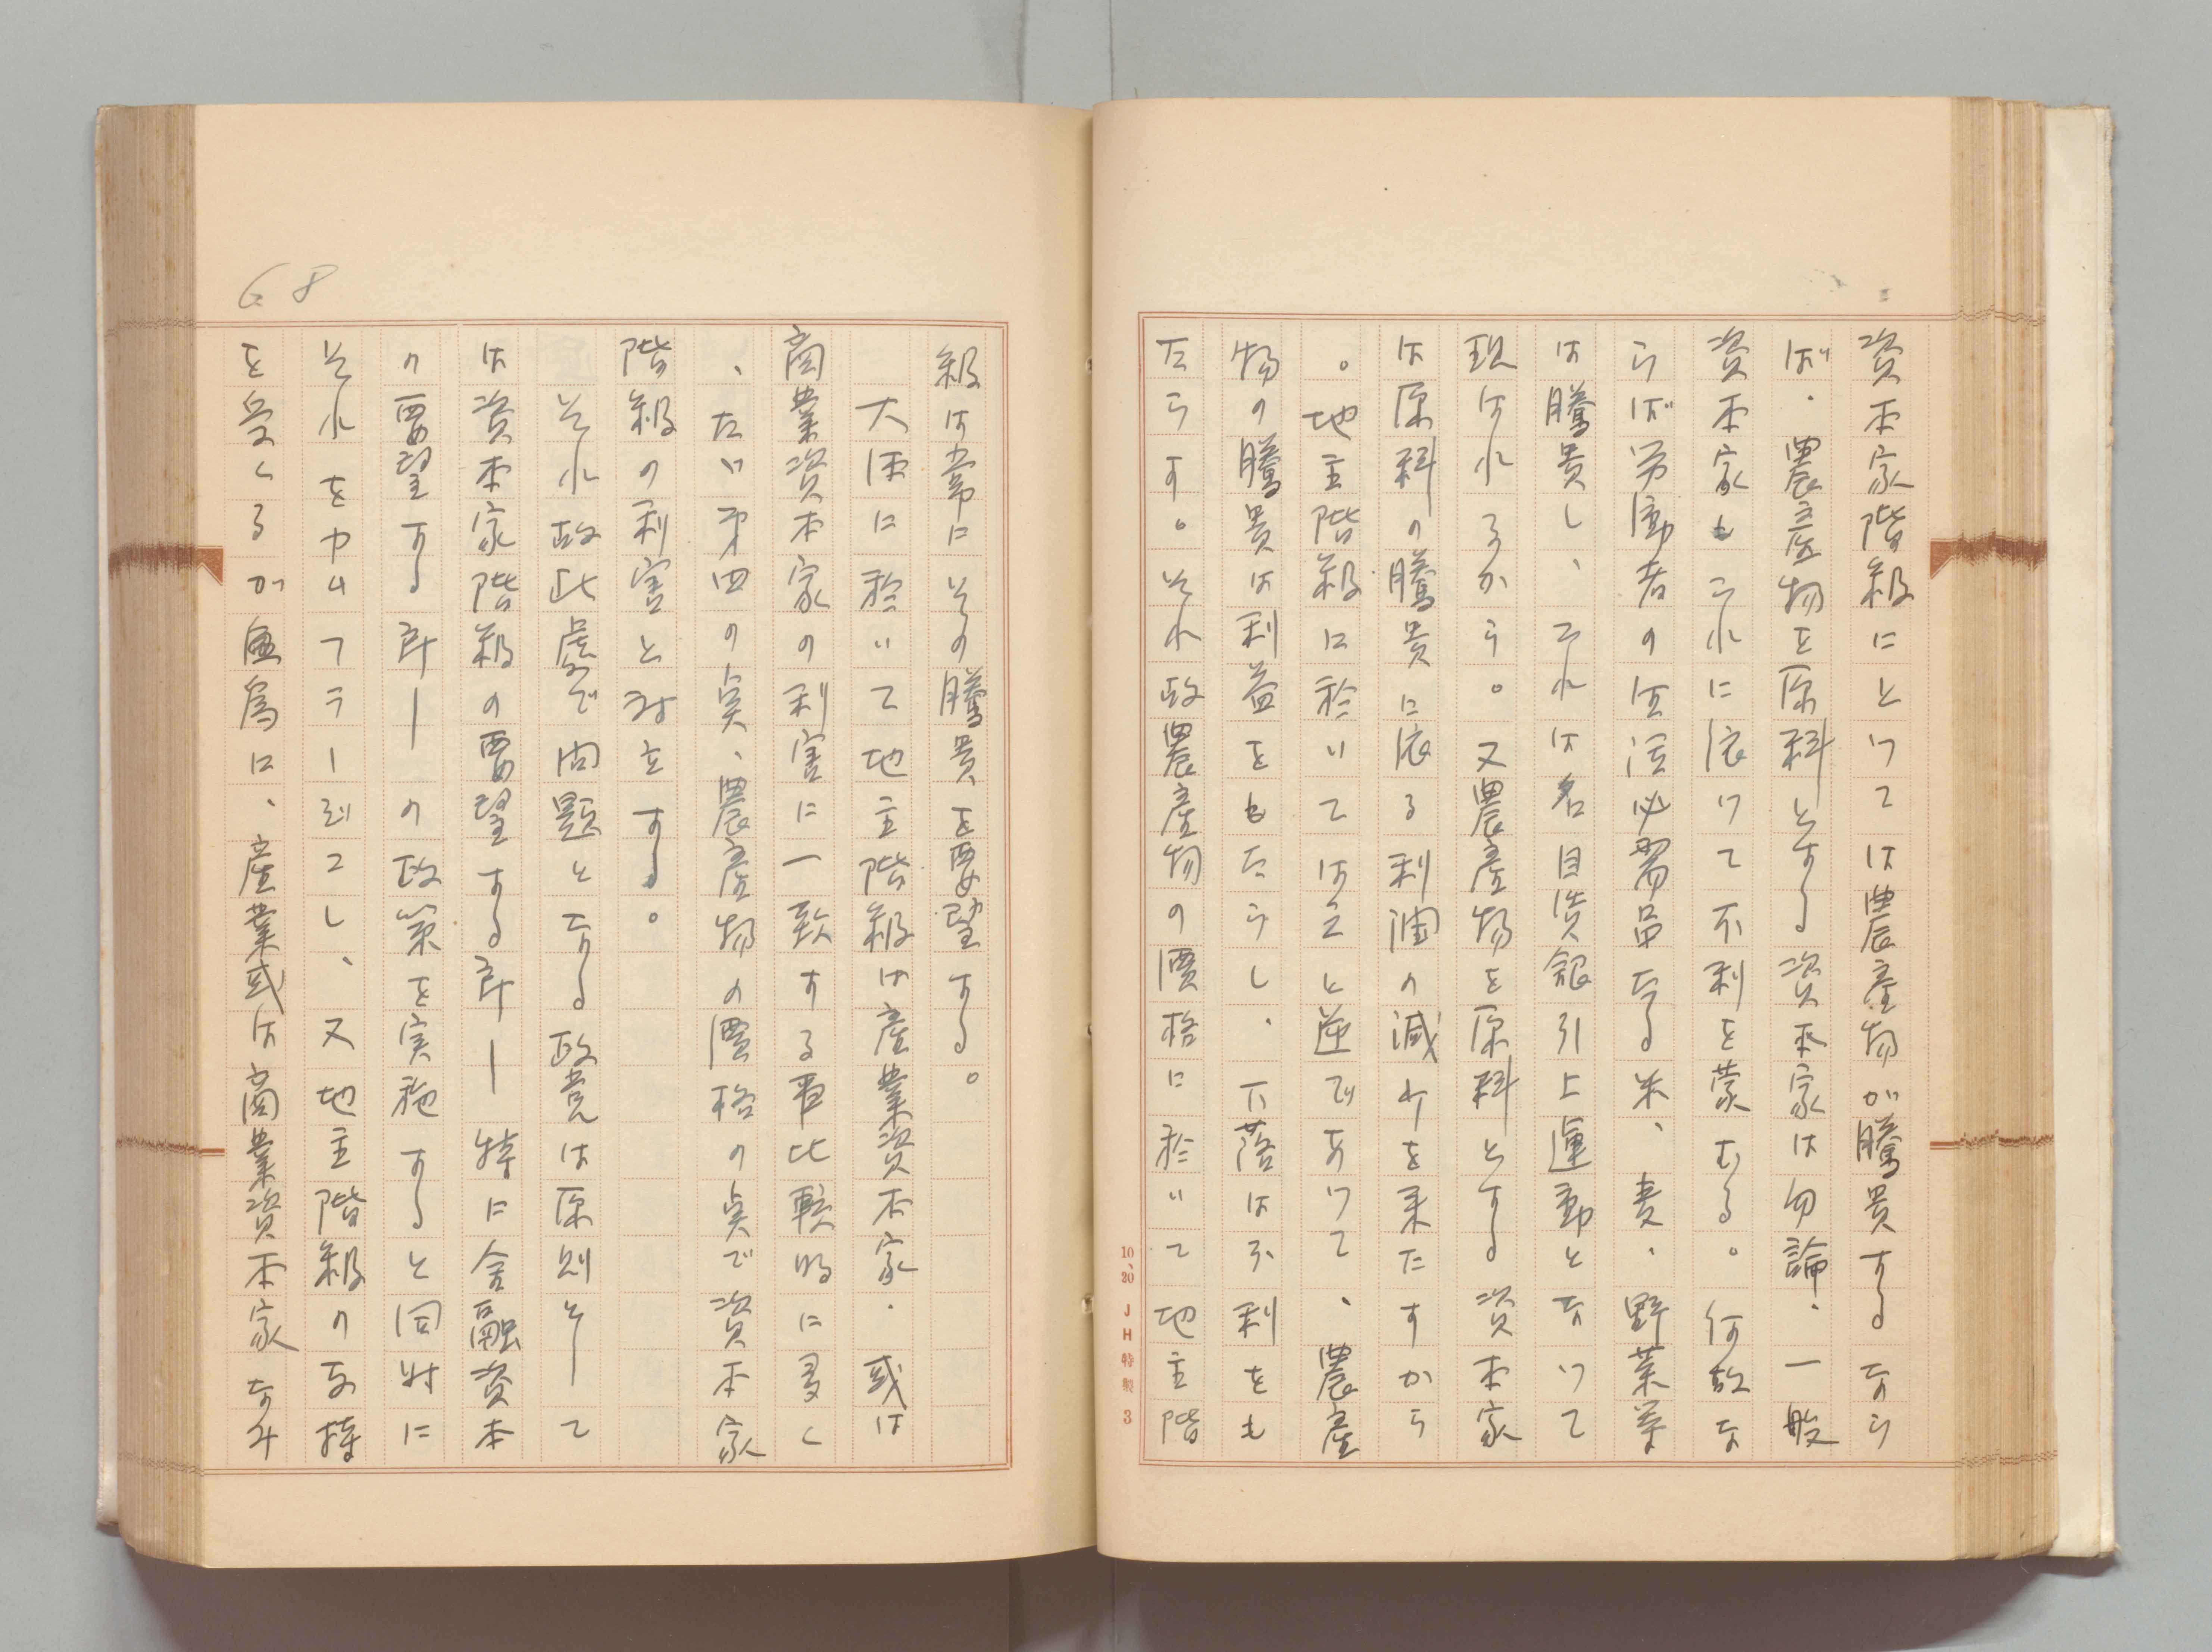 資本家階級にとって は農産物が騰貴するなら
ば、農産物を原料とする資本家は勿論、一般
資本家もこれに依って不利を蒙むる。何故な
らば労働者の生活必需品なる米、麦、野菜等
は騰貴し、それは名目賃銀引上運動となって
現はれるから。又農産物を原料とする資本家
は原料の騰貴に依る利潤の減少を来たすから
。地主階級に於いては之と逆であって、農産
物の騰貴は利益をもたらし、下落は不利をも
たらす。それ故農産物の價格に於いて地主階
10、20 JH特製 3
級は常にその騰貴を要望する。
大体に於いて地主階級は産業資本家・或は
商業資本家の利害に一致する事比較的に多く
、たゞ第四の点、農産物の價格の点で資本家
階級の利害と対立する。
それ故此處で問題となる政党は原則として
は資本家階級の要望する所ー特に金融資本
の要望する所ーの政策を実施すると同時に
それをカムフラージュし、又地主階級の支持
を受くるが為に、産業或は商業資本家なみ
68